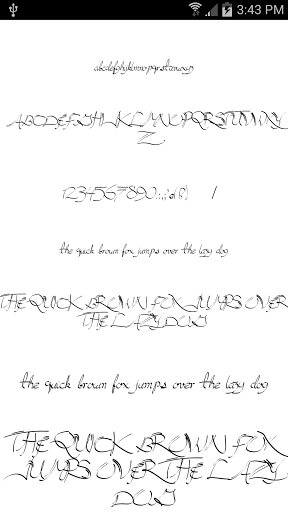 3:43 PM
abcdefghijklmnopqrstuvwxyz
ABCDEFGHIJKLMNOPQRSTUVWXY
Z
1234567890.:,;'"(!?) /
the quick brown fox jumps over the lazy dog
THE QUICK BROWN FOX JUMPS OVER
THE LAZY DOG
the quick brown fox jumps over the lazy dog
THE QUICK BROWN FOX
JUMPS OVER THE LAZY
DOG